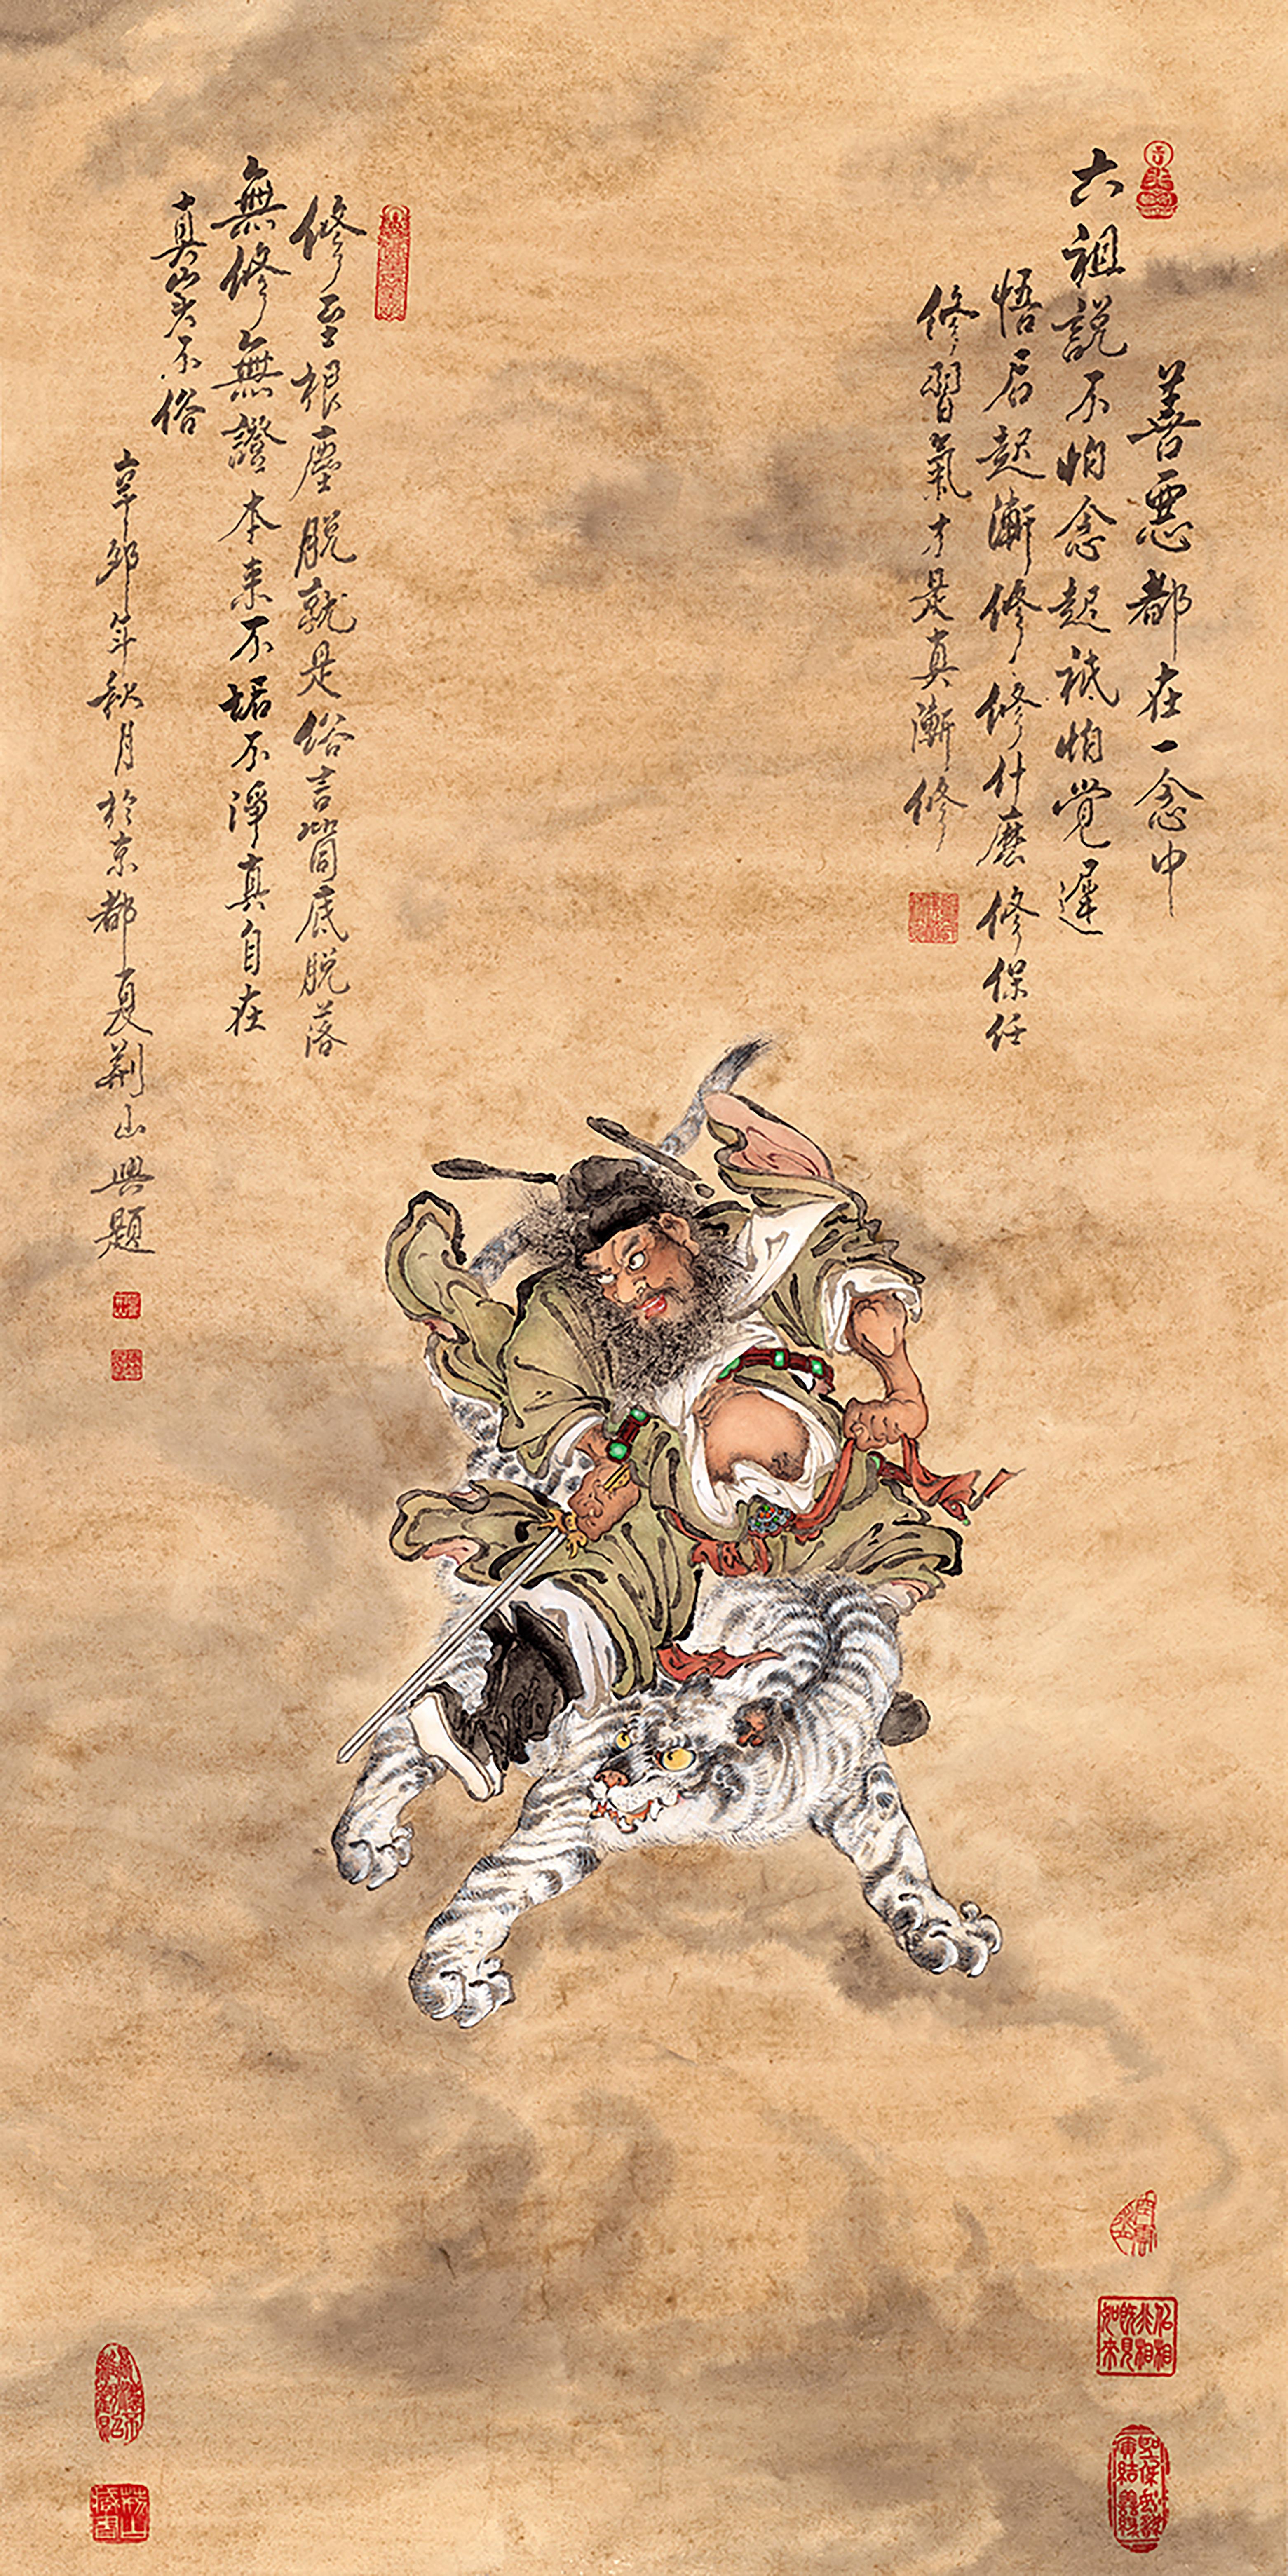 善惡都在一念中
六祖說不怕念起祗怕覺遲
悟后起漸修修什麽修保任
修習氣才是真漸修
修至根塵脫就是俗言筩底脫落
無修無證本来不垢不淨真自在
真實不俗
辛卯年秋月於京都夏荆山興題